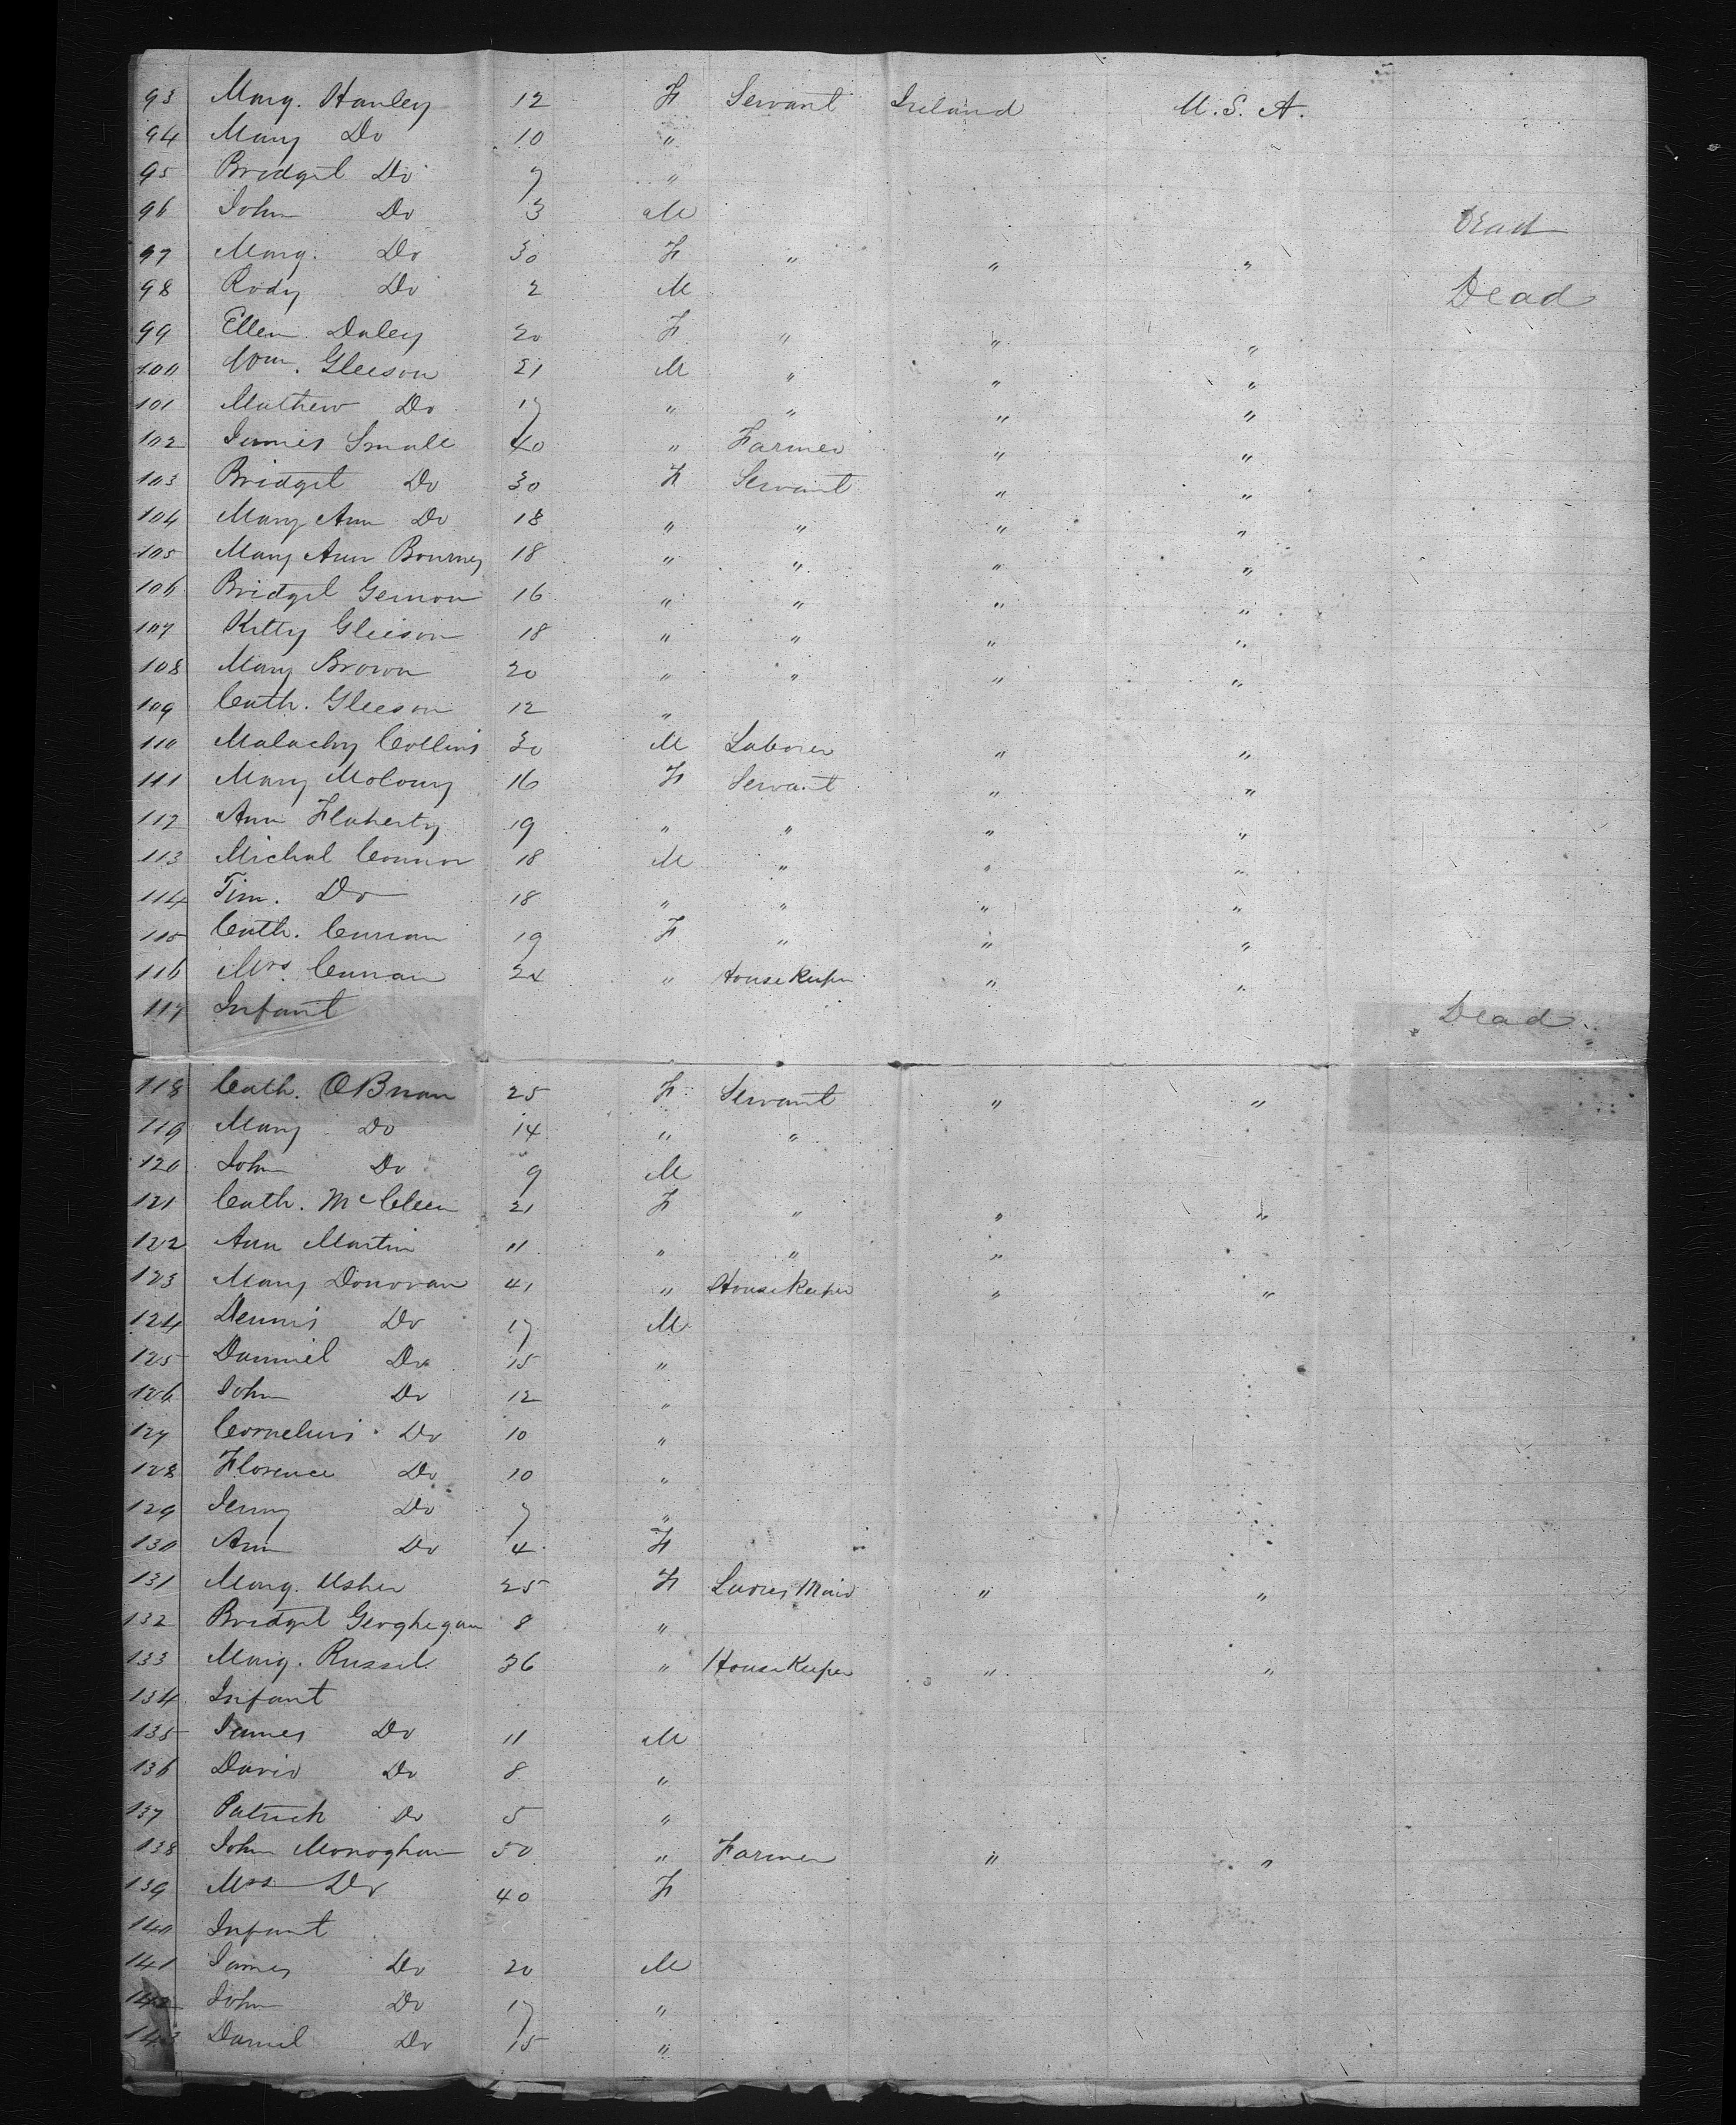 93 Marg. Hanley 12 F Servant Ireland U.S.A.
94 Mary Do 10 "
95 Bridget Do 7 "
96 John Do 3 M Dead
97 Marg. Do 30 F " " "
98 Rody Do 2 M Dead
99 Ellen Daley 20 F " " "
100 Wm. Gleeson 21 M " " "
101 Mathew Do 17 " " " "
102 James Small 40 " Farmer " "
103 Bridget Do 30 F Servant " "
104 Mary Ann Do 18 " " " "
105 Mary Ann Bourney 18 " " " "
106 Bridget Gernon 16 " " " "
107 Kitty Gleeson 18 " " " "
108 Mary Brown 20 " " " "
109 Cath. Gleeson 12 "
110 Malachy Collins 30 M Laborer " "
111 Mary Molony 16 F Servant " "
112 Ann Flaherty 19 " " " "
113 Michal Connor 18 M " " "
114 Tim. Do 18 " " " "
115 Cath. Curran 19 F " " "
116 Mrs Cunnan 24 " HouseKeeper " "
117 Infant Dead
118 Cath. OBrian 25 F Servant " "
119 Mary Do 14 " "
120 John Do 9 M
121 Cath. McCleen 21 F " " "
122 Ann Martin 11 " " "
123 Mary Donovan 41 " HouseKeeper " "
124 Dennis Do 17 M
125 Danniel Do 15 "
126 John Do 12 "
127 Cornelius Do 10 "
128 Florence Do 10 "
129 Jerry Do 7 "
130 Ann Do 4 F
131 Marg. Usher 25 F Ladies Maid " "
132 Bridget Geoghegan 8 "
133 Marg. Russel 36 " HouseKeeper " "
134 Infant
135 James Do 11 M
136 David Do 8 "
137 Patrick Do 5 "
138 John Monoghan 50 " Farmer " "
139 Mrs Do 40 F
140 Infant
141 James Do 20 M
142 John Do 17 "
143 Daniel Do 15 "